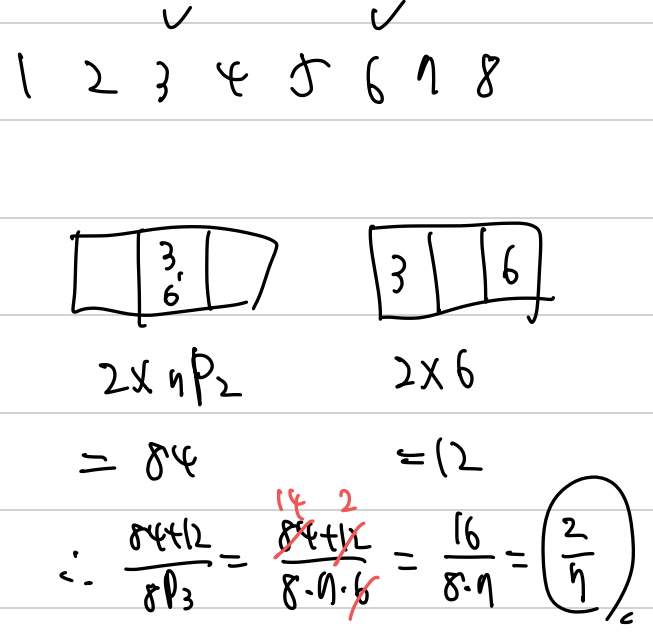 ✓ ✓
1 2 3 4 5 6 7 8
3, 6 3 6
2×₇P₂ 2×6
= 84 =12
14 2
∴ (84+12)/₈P₃ = (84+12)/(8·7·6) = 16/(8·7) = 2/7